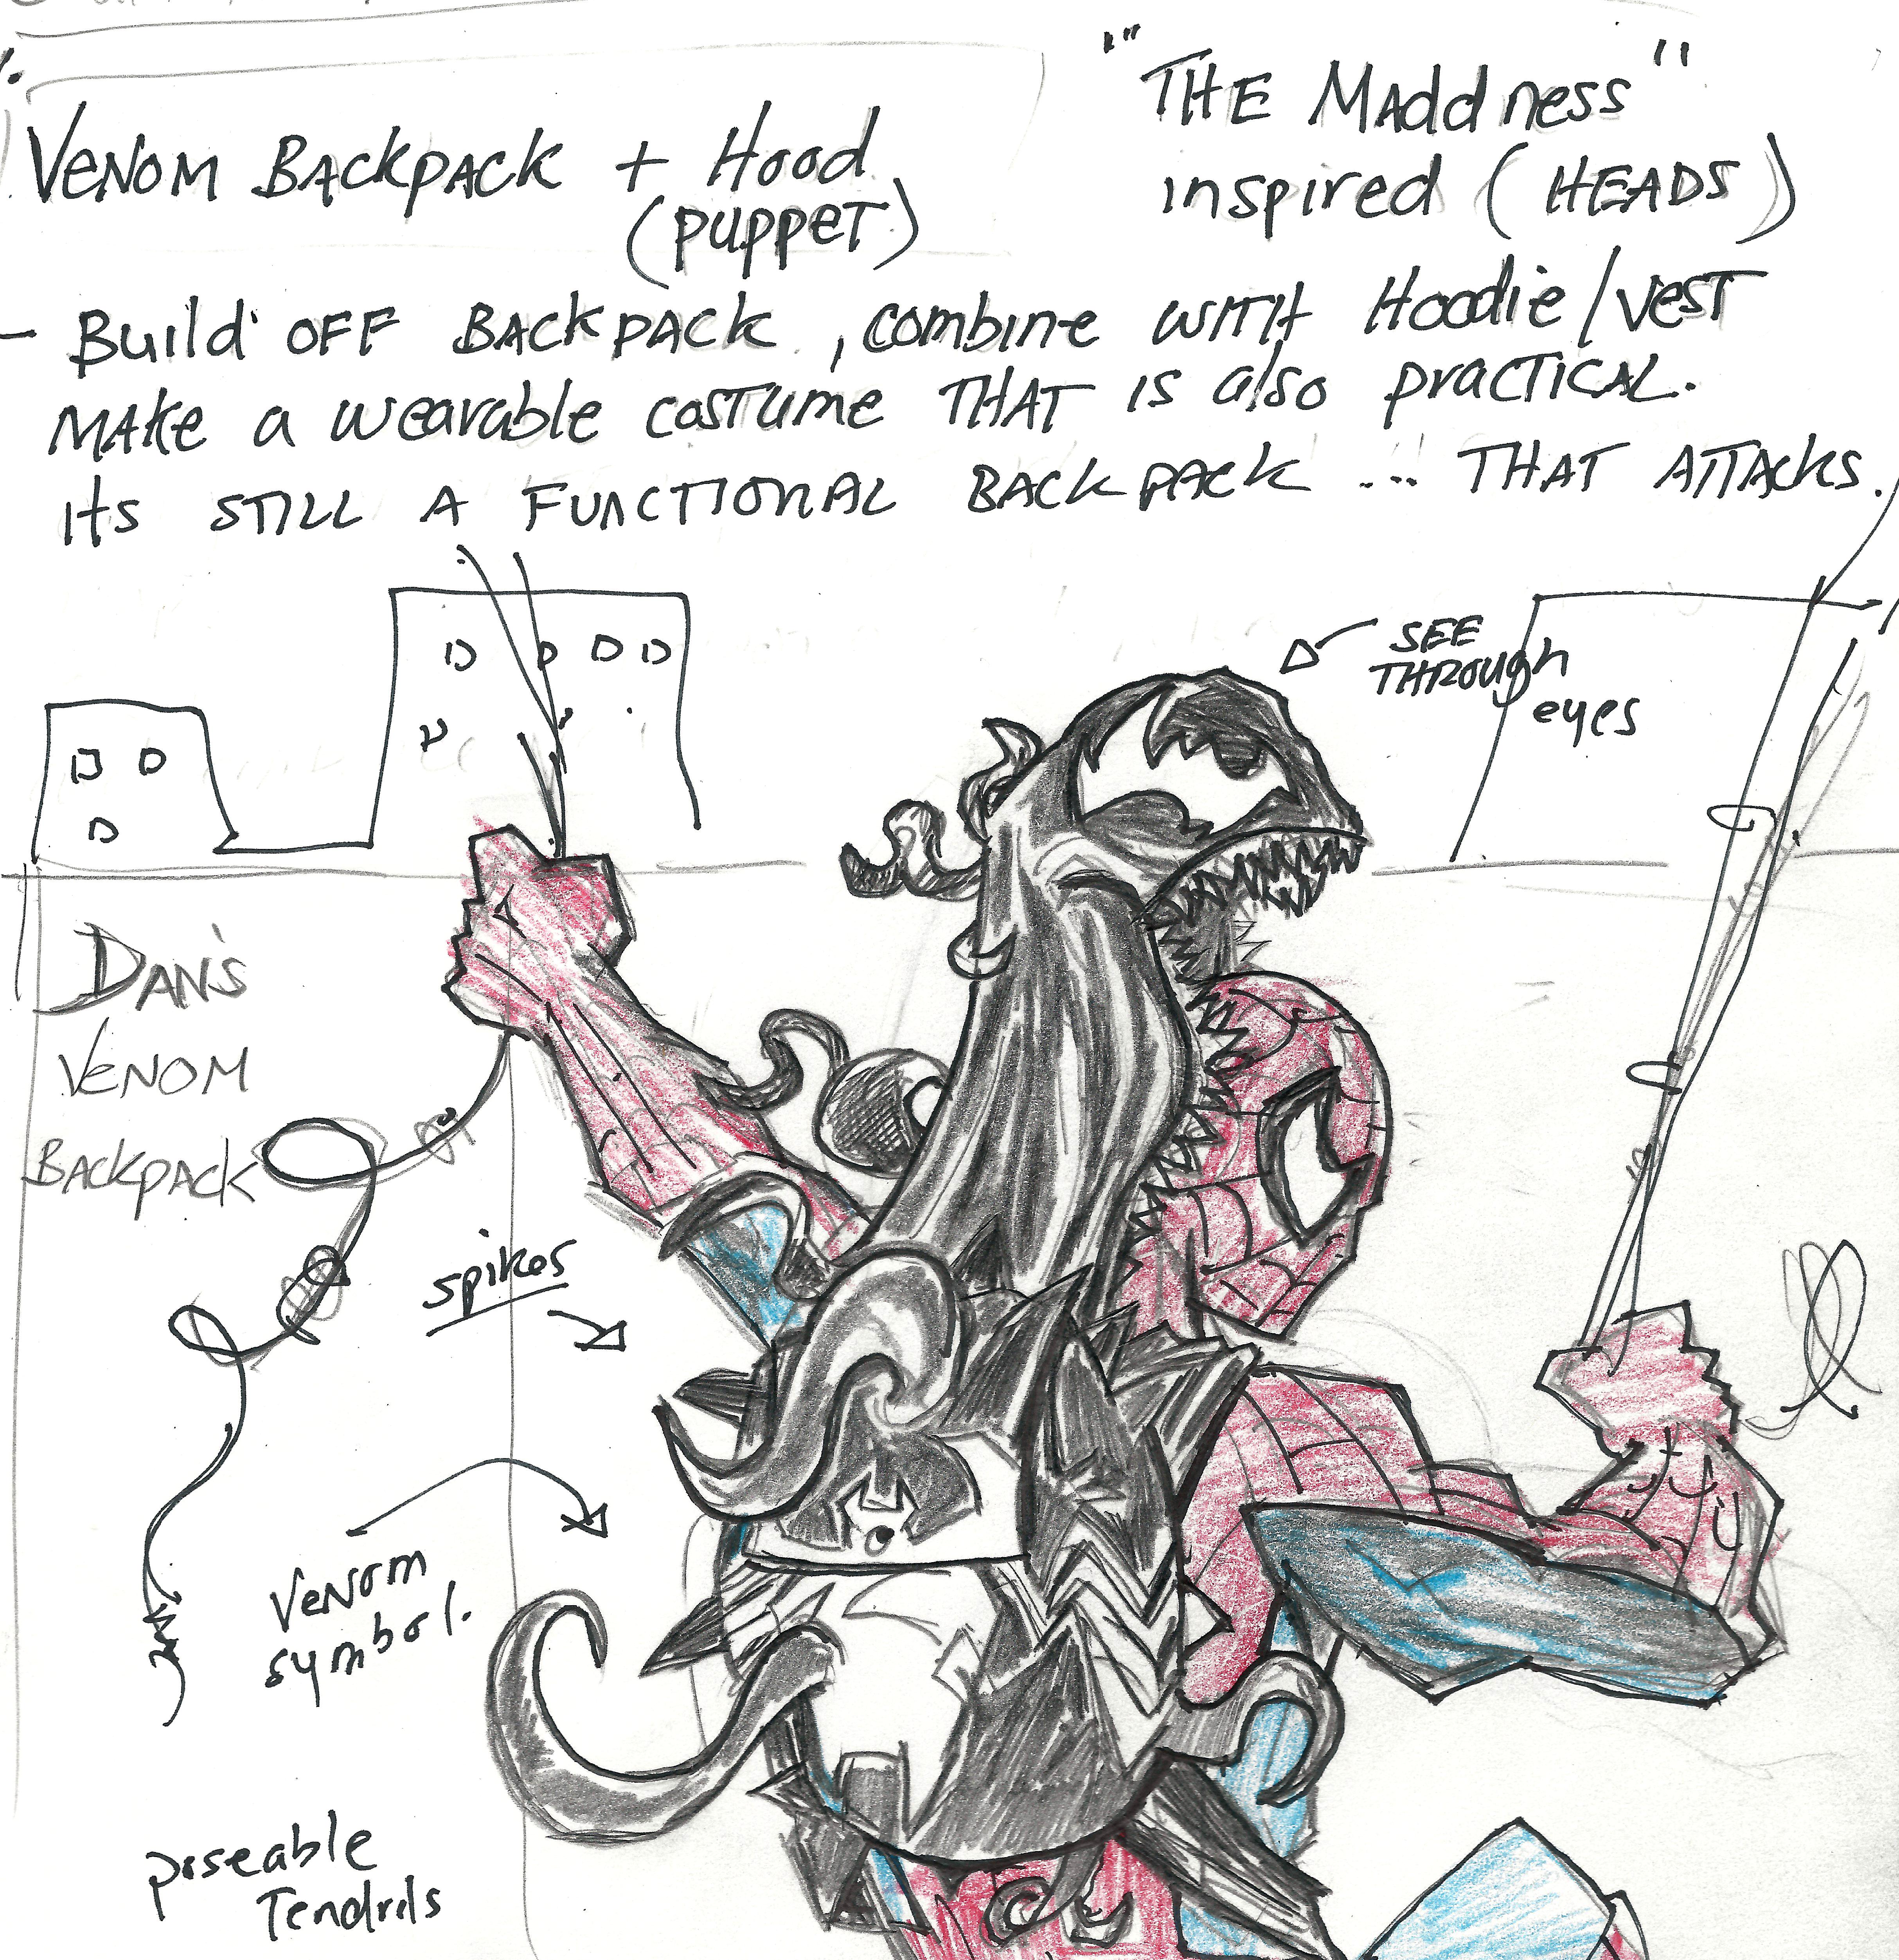 VENOM BACKPACK + Hood
(PUPPET)
"THE MADdness"
inspired (HEADS)
- Build OFF BACKPACK, combine WITH Hoodie/vest
MAKe a wearable costume THAT is also practical.
its STILL A FUNCTIONAL BACKPACK ... THAT ATTACKS.
SEE
THROUGH
eyes
DAN'S
VENOM
BACKPACK
spikes
VENOM
symbol.
poseable
Tendrils